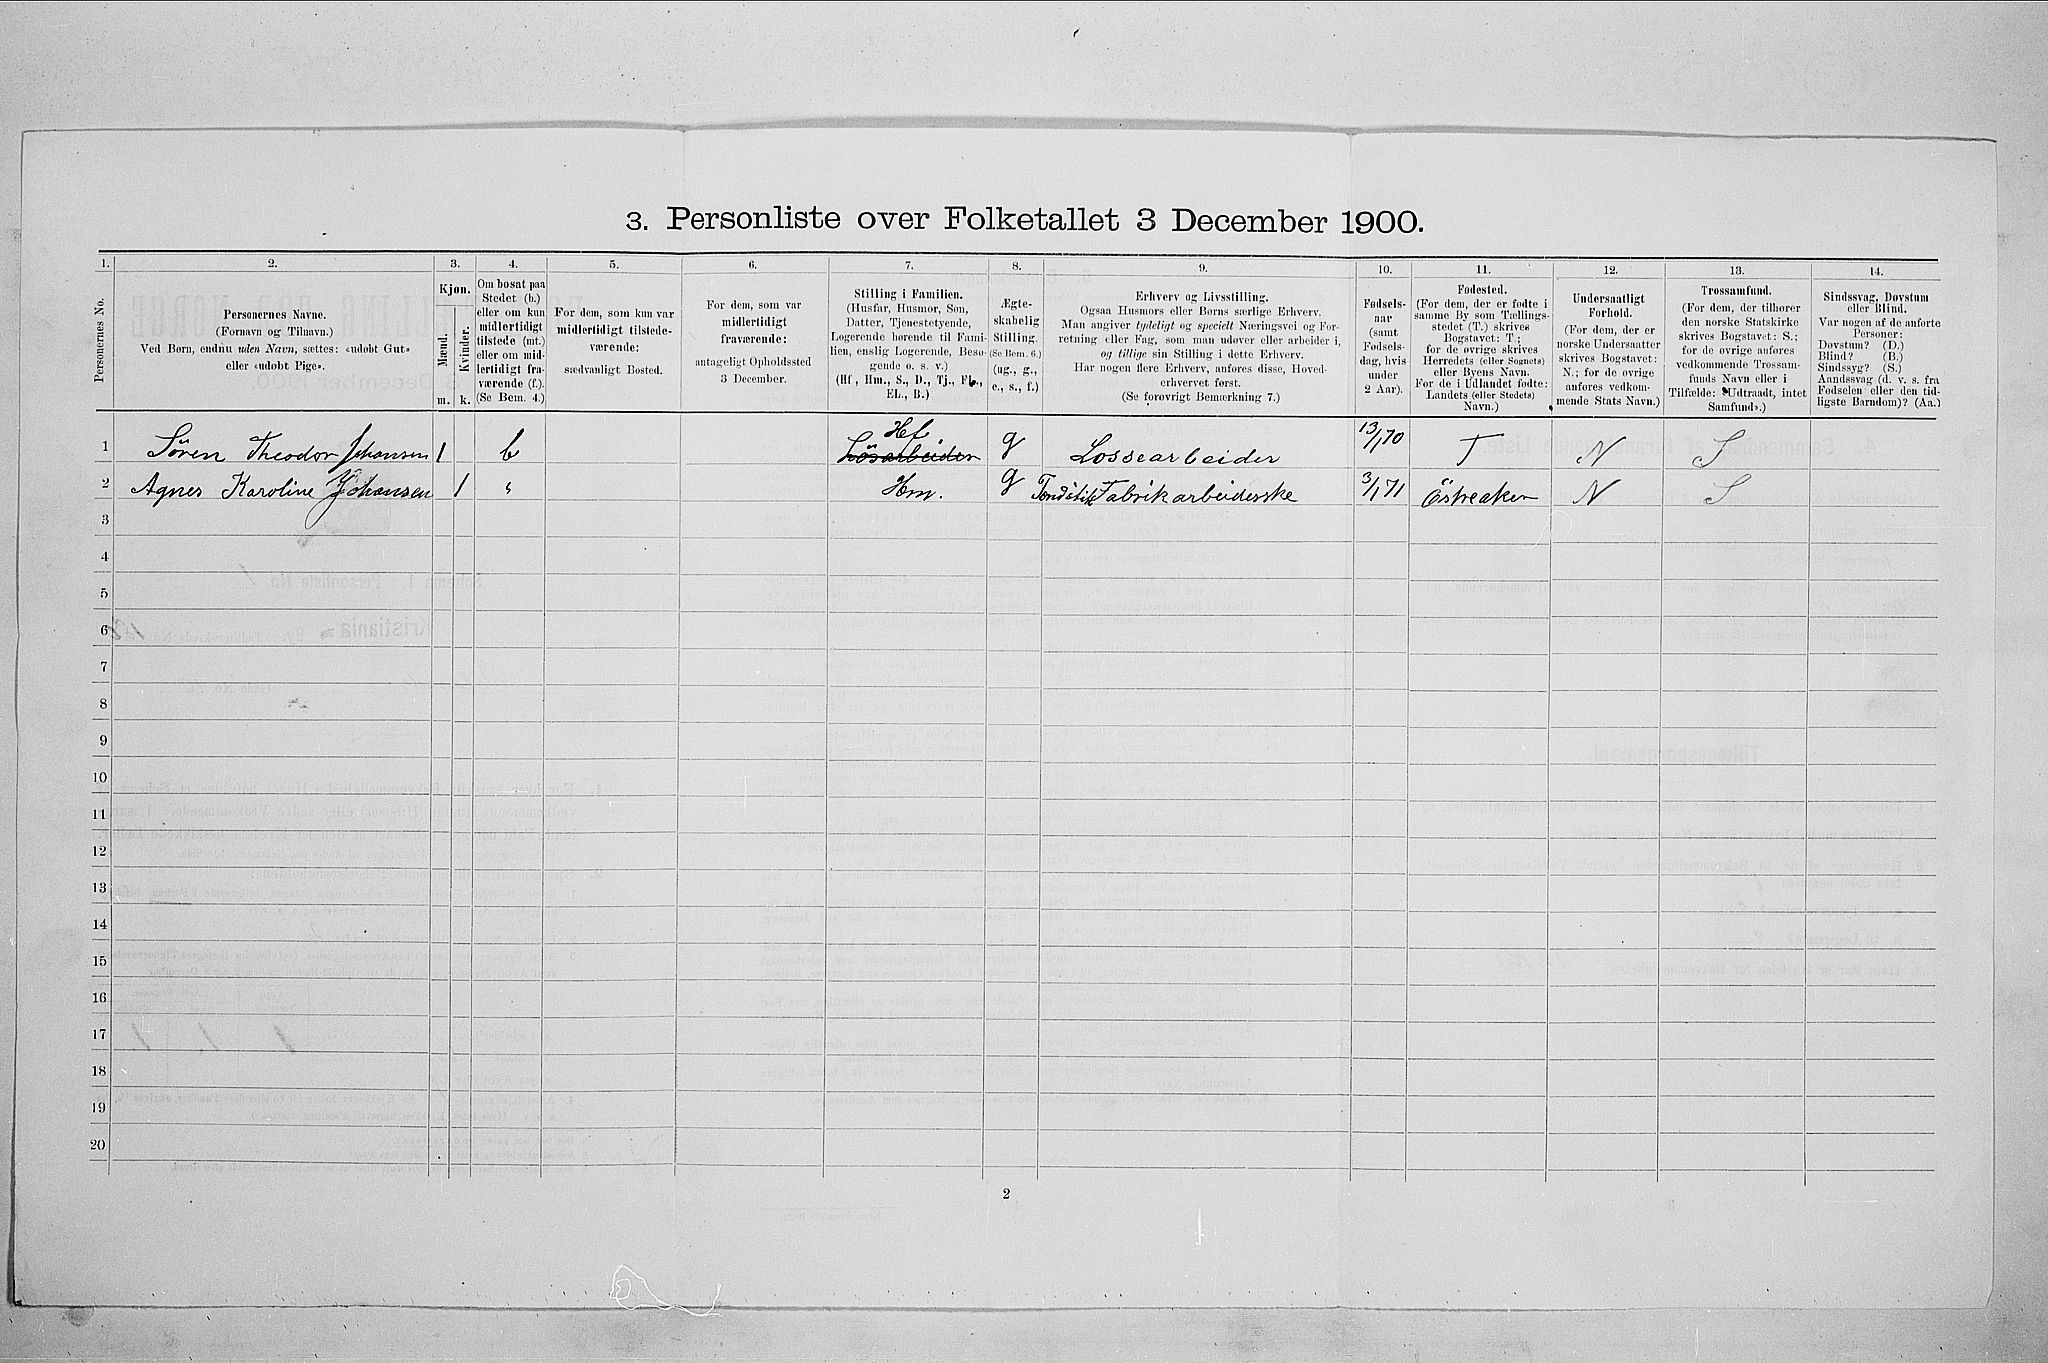 3. Personliste over Folketallet 3 December 1900.
1. 2. 3. 4. 5. 6. 7. 8. 9. 10. 11. 12. 13. 14.
Personernes No.
Personernes Navne.
(Fornavn og Tilnavn.)
Ved Børn, endnu uden Navn, sættes: «udøbt Gut»
eller «udøbt Pige».
Kjøn.
Mænd.
Kvinder.
m. k.
Om bosat paa
Stedet (b.)
eller om kun
midlertidigt
tilstede (mt.)
eller om mid-
lertidigt fra-
værende (f.).
(Se Bem. 4.)
For dem, som kun var
midlertidigt tilstede-
værende:
sædvanligt Bosted.
For dem, som var
midlertidigt
fraværende:
antageligt Opholdssted
3 December.
Stilling i Familien.
(Husfar, Husmor, Søn,
Datter, Tjenestetyende,
Logerende hørende til Fami-
lien, enslig Logerende, Besø-
gende o. s. v.)
(Hf., Hm., S., D., Tj., FL.,
EL., B.)
Ægte-
skabelig
Stilling.
(Se Bem. 6.)
(ug., g.,
e., s., f.)
Erhverv og Livsstilling.
Ogsaa Husmors eller Børns særlige Erhverv.
Man angiver tydeligt og specielt Næringsvei og For-
retning eller Fag, som man udøver eller arbeider i,
og tillige sin Stilling i dette Erhverv.
Har nogen flere Erhverv, anføres disse, Hoved-
erhvervet først.
(Se forøvrigt Bemærkning 7.)
Fødsels-
aar
(samt
Fødsels-
dag, hvis
under
2 Aar).
Fødested.
(For dem, der er fødte i
samme By som Tællings-
stedet (T.) skrives
Bogstavet: T.;
for de øvrige skrives
Herredets (eller Sognets)
eller Byens Navn.
For de i Udlandet fødte:
Landets (eller Stedets)
Navn.)
Undersaatligt
Forhold.
(For dem, der er
norske Undersaatter
skrives Bogstavet:
N.; for de øvrige
anføres vedkom-
mende Stats Navn.)
Trossamfund.
(For dem, der tilhører
den norske Statskirke
skrives Bogstavet: S.;
for de øvrige anføres
vedkommende Trossam-
funds Navn eller i
Tilfælde: «Udtraadt, intet
Samfund».)
Sindssvag, Døvstum
eller Blind.
Var nogen af de anførte
Personer:
Døvstum? (D.)
Blind? (B.)
Sindssyg? (S.)
Aandssvag (d. v. s. fra
Fødselen eller den tid-
ligste Barndom)? (Aa.)
1 Sören Theodor Johansen 1 b Hf Lösarbeider g Lossearbeider 13/1 70 T N S
2 Agnes Karoline Johansen 1 " Hm. g Fabrikarbeiderske 3/1 71 Östreaker N S
3
4
5
6
7
8
9
10
11
12
13
14
15
16
17
18
19
20
2